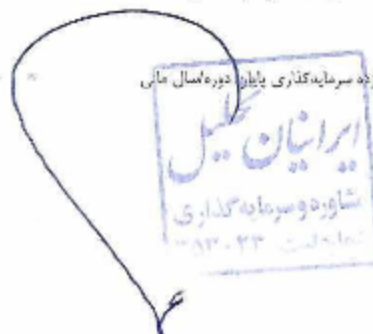 سرمایه‌گذاری پایان دوره/سال مالی
ایرانیان تحلیل
مشاوره و سرمایه‌گذاری